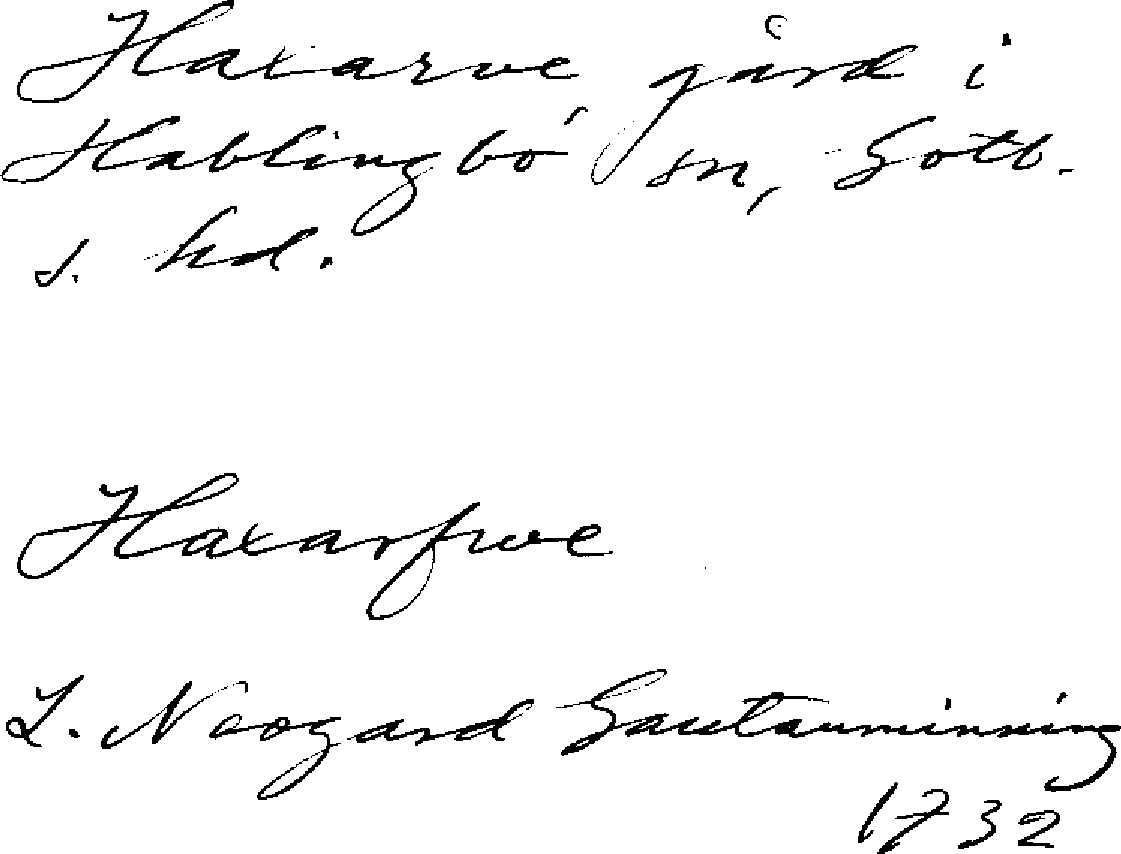 Haxarve gård i
Hablingbo sn, Gotl.
s. hd.
Haxarfwe
L. Neogard Gautauminning
1732